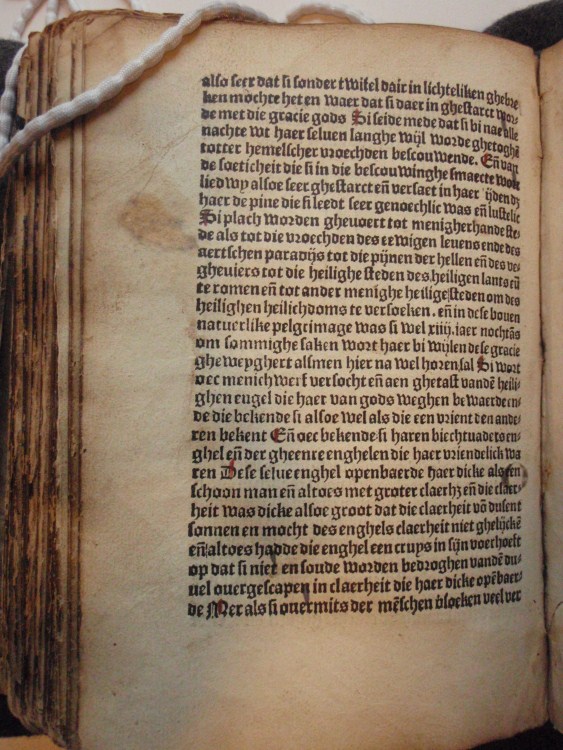 also seer dat si sonder twifel dair in lichteliken ghebre
ken mochte het en waer dat si daer in ghestarct wor-
de met die gracie gods Si seide mede dat si bi nae alle
nachte wt haer seluen langhe wijl worde ghetoghē
totter hemelscher vroechden bescouwende. Eñ van
de soeticheit die si in die bescouwinghe smaecte wort
lied wy alsoe seer ghestarct eñ versaet in haer
haer de pine die si leedt seer genoechlic was eñ lustelic
Si plach worden gheuoert tot menigherhande ste-
de als tot die vroechden des eewigen leuens ende des
aertschen paradijs tot die pijnen der hellen eñ des ve-
gheuiers tot die heilighe steden des heiligen lants eñ
te romen eñ tot ander menighe heilige steden om des
heilighen heilichdoms te versoeken. eñ in dese bouen
natuerlike pelgrimage was si wel xiiij. iaer nochtās
om sommighe saken wort haer bi wijlen dese gracie
gheweyghert alsmen hier na wel horen sal Si wort
oec menichwerf versocht eñ aen ghetast vandē heili-
ghen eugel die haer van gods weghen bewaerde en-
de die bekende si alsoe wel als die een vrient den ande-
ren bekent Eñ oec bekende si haren biechtuaders en-
ghel eñ der gheenre enghelen die haer vriendelick wa
ren Dese selue enghel openbaerde haer dicke als een
schoon man eñ altoes met groter claerhz eñ die claer-
heit was dicke alsoe groot dat die claerheit vō dusent
sonnen en mocht des enghels claerheit niet ghelijckē
eñ altoes hadde die enghel een cruys in sijn voerhoeft
op dat si niet en soude worden bedroghen vandē du-
uel ouergescapen in claerheit die haer dicke opēbaer-
de Mer als si ouermits der mēschen v̄soeken veel ver